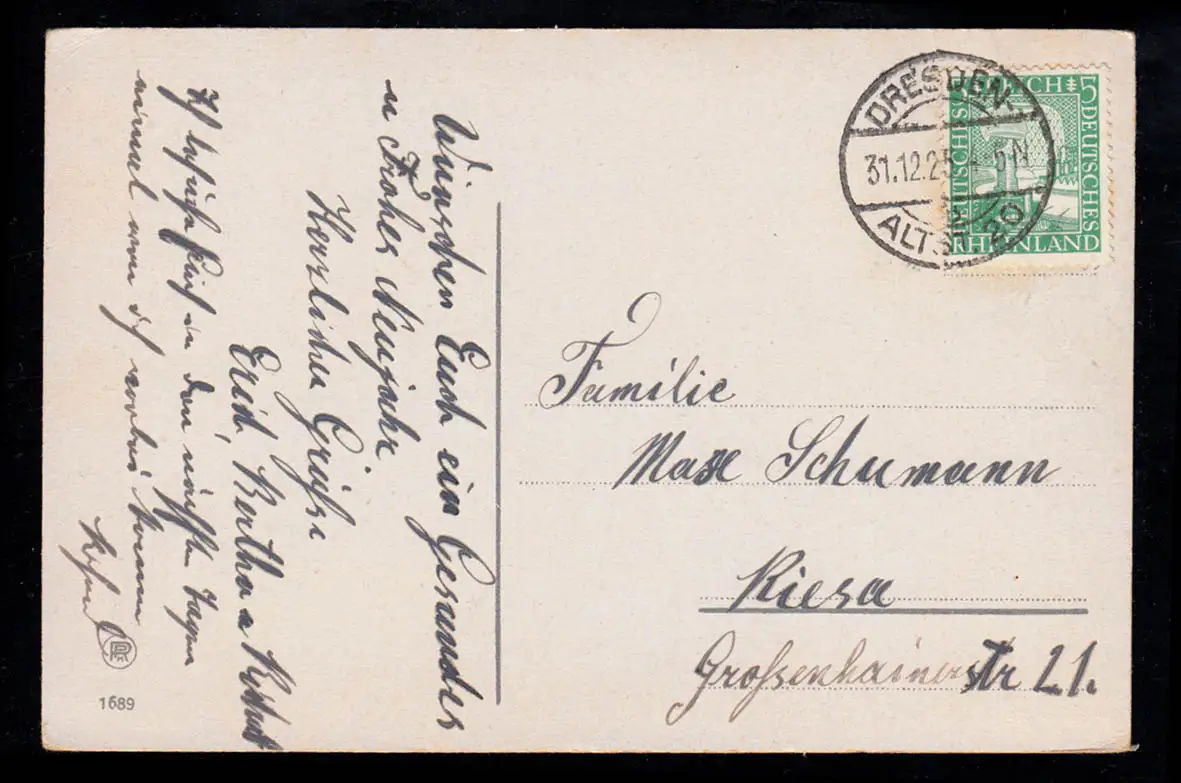 Wünschen Euch ein Gesundes
u Frohes Neujahr.
Herzlichen Grüsse
Bertha u
Ich besuche Euch in den nächsten Tagen
einmal wenn ich komme
1689
DRESDEN-
31.12.25 5N
ALTST. 20
5
DEUTSCHES
RHEINLAND
Familie
Max Schumann
Riesa
Großenhainerstr 21.